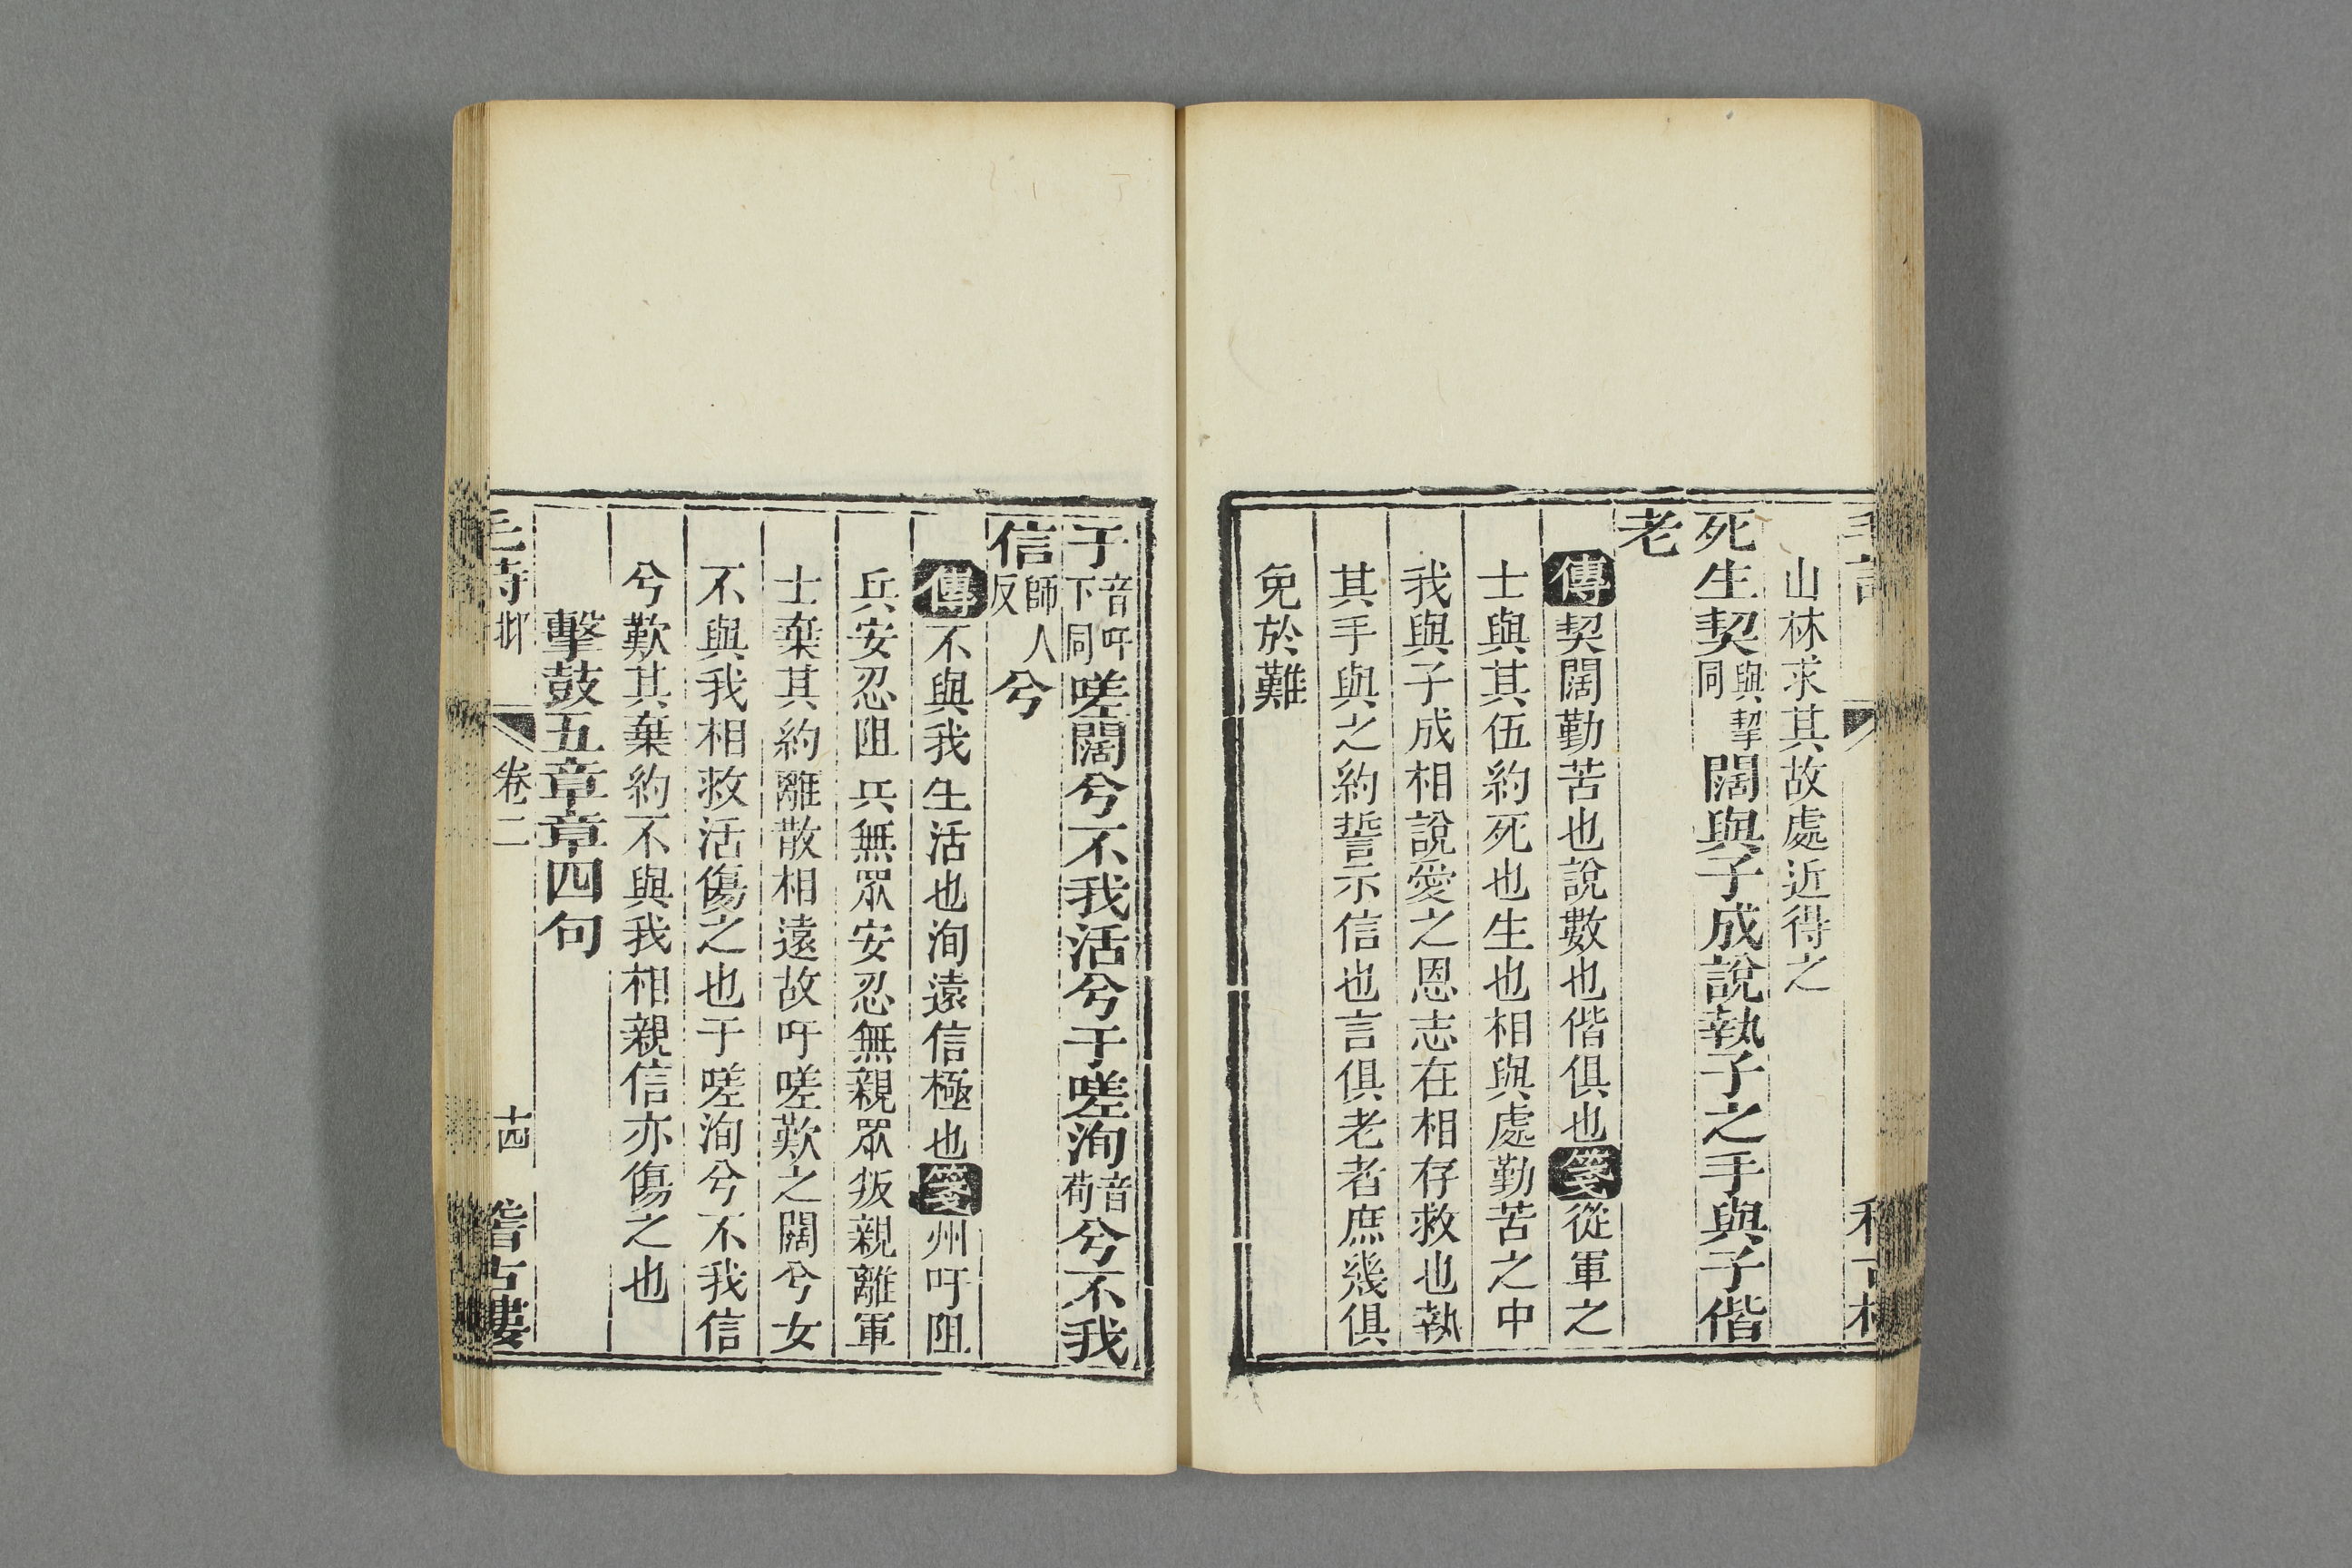 山林求其故處近得之
死生契與挈同闊與子成說執子之手與子偕
老
傳契闊勤苦也說數也偕俱也箋從軍之
士與其伍約死也生也相與處勤苦之中
我與子成相說愛之恩志在相存救也執
其手與之約誓示信也言俱老者庶幾俱
免於難
于音吁下同嗟闊兮不我活兮于嗟洵音荀兮不我
信師人反兮
傳不與我生活也洵遠信極也箋州吁阻
兵安忍阻兵無眾安忍無親眾叛親離軍
士棄其約離散相遠故吁嗟歎之闊兮女
不與我相救活傷之也于嗟洵兮不我信
兮歎其棄約不與我相親信亦傷之也
擊鼓五章章四句
毛詩邶 卷二 十四 稽古樓